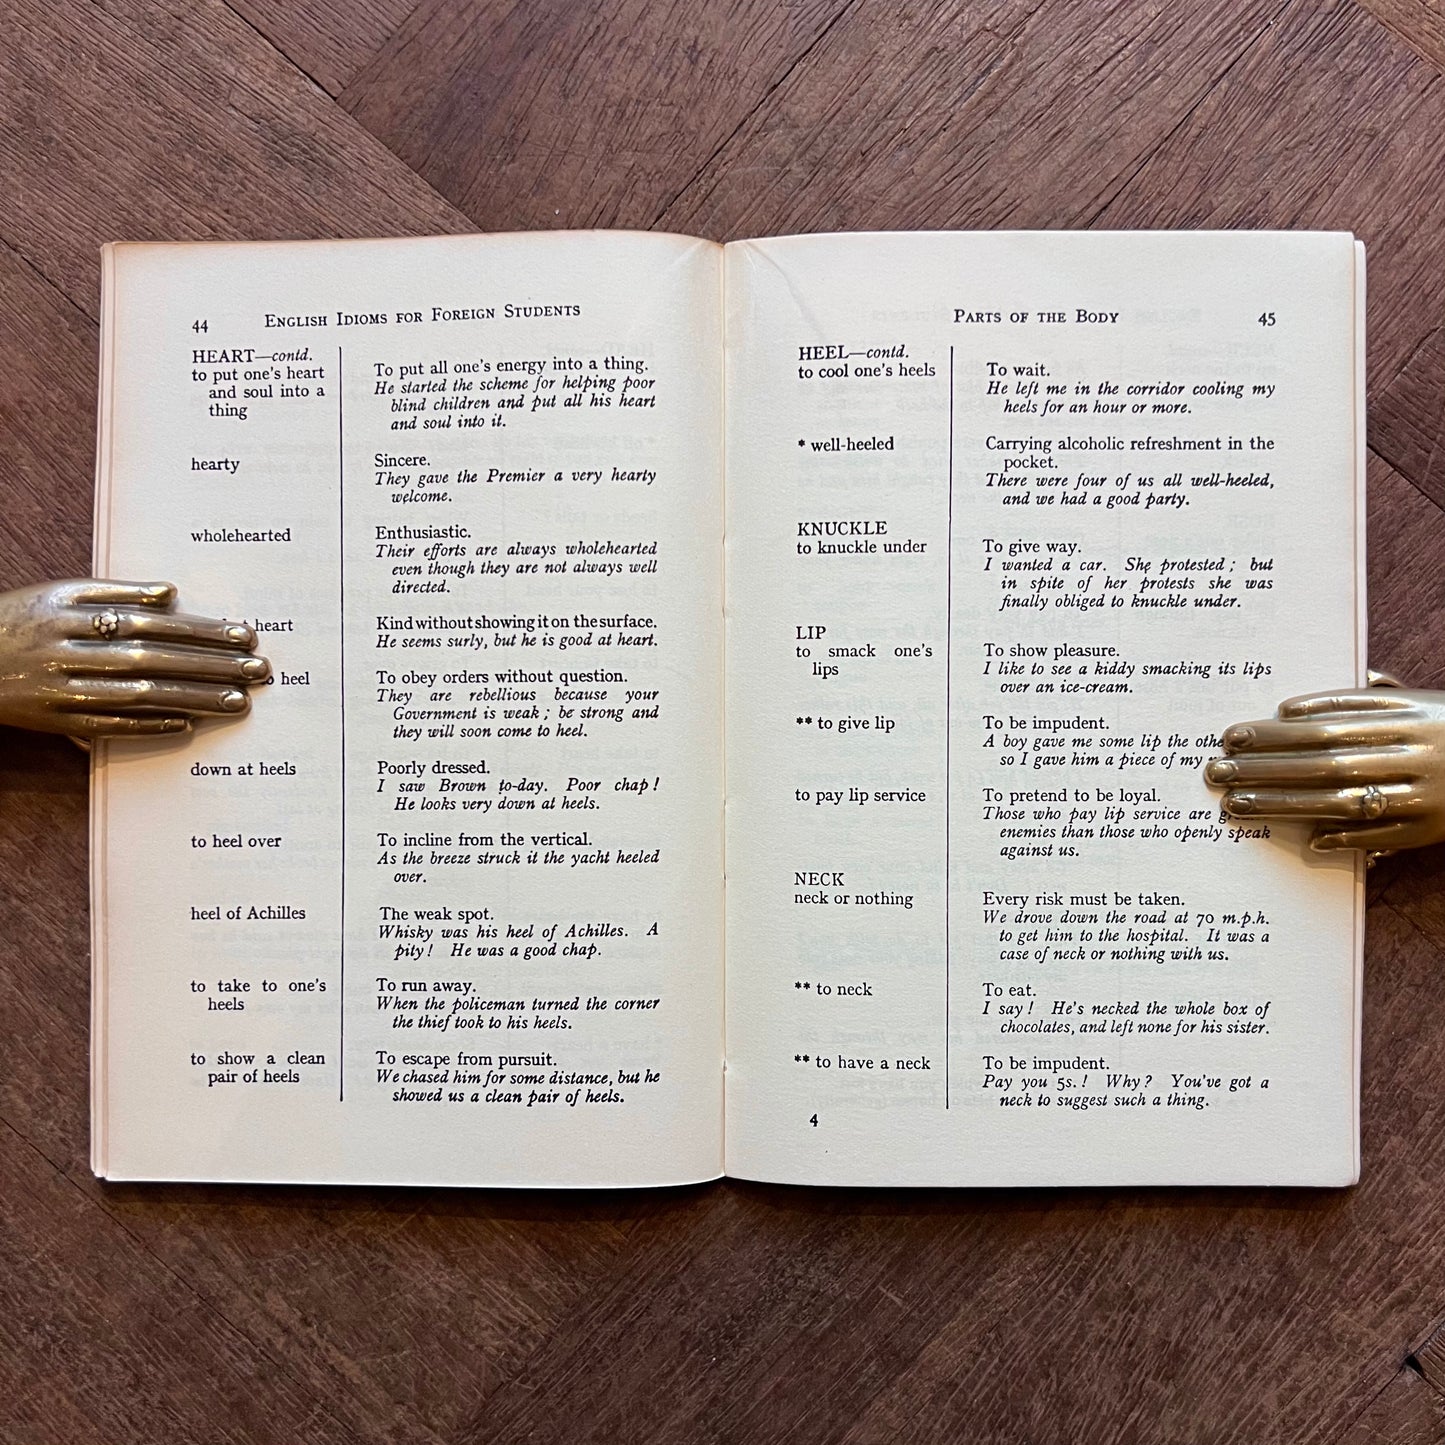 44 English Idioms for Foreign Students
HEART—contd.
to put one's heart
and soul into a
thing
To put all one's energy into a thing.
He started the scheme for helping poor
blind children and put all his heart
and soul into it.
hearty
Sincere.
They gave the Premier a very hearty
welcome.
wholehearted
Enthusiastic.
Their efforts are always wholehearted
even though they are not always well
directed.
heart
Kind without showing it on the surface.
He seems surly, but he is good at heart.
heel
To obey orders without question.
They are rebellious because your
Government is weak; be strong and
they will soon come to heel.
down at heels
Poorly dressed.
I saw Brown to-day. Poor chap!
He looks very down at heels.
to heel over
To incline from the vertical.
As the breeze struck it the yacht heeled
over.
heel of Achilles
The weak spot.
Whisky was his heel of Achilles. A
pity! He was a good chap.
to take to one's
heels
To run away.
When the policeman turned the corner
the thief took to his heels.
to show a clean
pair of heels
To escape from pursuit.
We chased him for some distance, but he
showed us a clean pair of heels.
Parts of the Body 45
HEEL—contd.
to cool one's heels
To wait.
He left me in the corridor cooling my
heels for an hour or more.
* well-heeled
Carrying alcoholic refreshment in the
pocket.
There were four of us all well-heeled,
and we had a good party.
KNUCKLE
to knuckle under
To give way.
I wanted a car. She protested; but
in spite of her protests she was
finally obliged to knuckle under.
LIP
to smack one's
lips
To show pleasure.
I like to see a kiddy smacking its lips
over an ice-cream.
** to give lip
To be impudent.
A boy gave me some lip the
so I gave him a piece of my
to pay lip service
To pretend to be loyal.
Those who pay lip service are
enemies than those who openly speak
against us.
NECK
neck or nothing
Every risk must be taken.
We drove down the road at 70 m.p.h.
to get him to the hospital. It was a
case of neck or nothing with us.
** to neck
To eat.
I say! He's necked the whole box of
chocolates, and left none for his sister.
** to have a neck
To be impudent.
Pay you 5s.! Why? You've got a
neck to suggest such a thing.
4